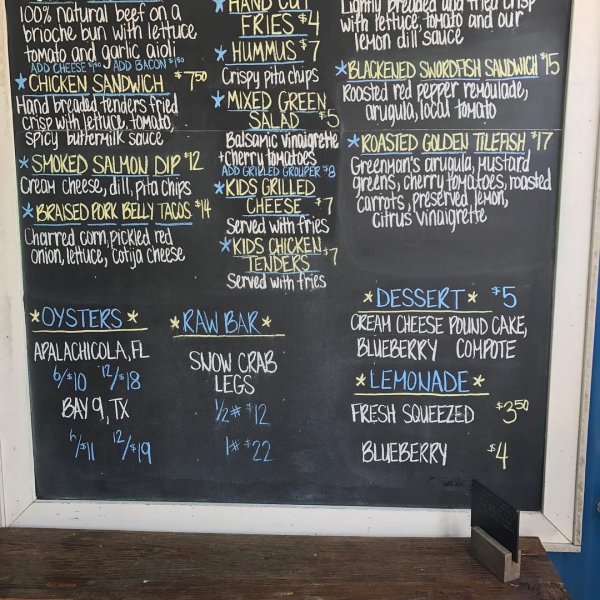 100% natural beef on a
brioche bun with lettuce,
tomato and garlic aioli
ADD CHEESE $1.50 ADD BACON $1.50
* CHICKEN SANDWICH $7.50
Hand breaded tenders fried
crisp with lettuce, tomato,
spicy buttermilk sauce
* SMOKED SALMON DIP $12
Cream cheese, dill, pita chips
* BRAISED PORK BELLY TACOS $14
Charred corn, pickled red
onion, lettuce, cotija cheese
* HAND CUT
FRIES $4
* HUMMUS $7
Crispy pita chips
* MIXED GREEN
SALAD $5
Balsamic vinaigrette
+ cherry tomatoes
ADD GRILLED GROUPER $8
* KIDS GRILLED
CHEESE $7
Served with fries
* KIDS CHICKEN
TENDERS $7
Served with fries
Lightly breaded and fried crisp
with lettuce, tomato and our
lemon dill sauce
* BLACKENED SWORDFISH SANDWICH $15
Roasted red pepper remoulade,
arugula, local tomato
* ROASTED GOLDEN TILEFISH $17
Greenman's arugula, mustard
greens, cherry tomatoes, roasted
carrots, preserved lemon,
citrus vinaigrette
* OYSTERS *
APALACHICOLA, FL
6/$10 12/$18
BAY 9, TX
6/$11 12/$19
* RAW BAR *
SNOW CRAB
LEGS
1/2# $12
1# $22
* DESSERT * $5
CREAM CHEESE POUND CAKE,
BLUEBERRY COMPOTE
* LEMONADE *
FRESH SQUEEZED $3.50
BLUEBERRY $4